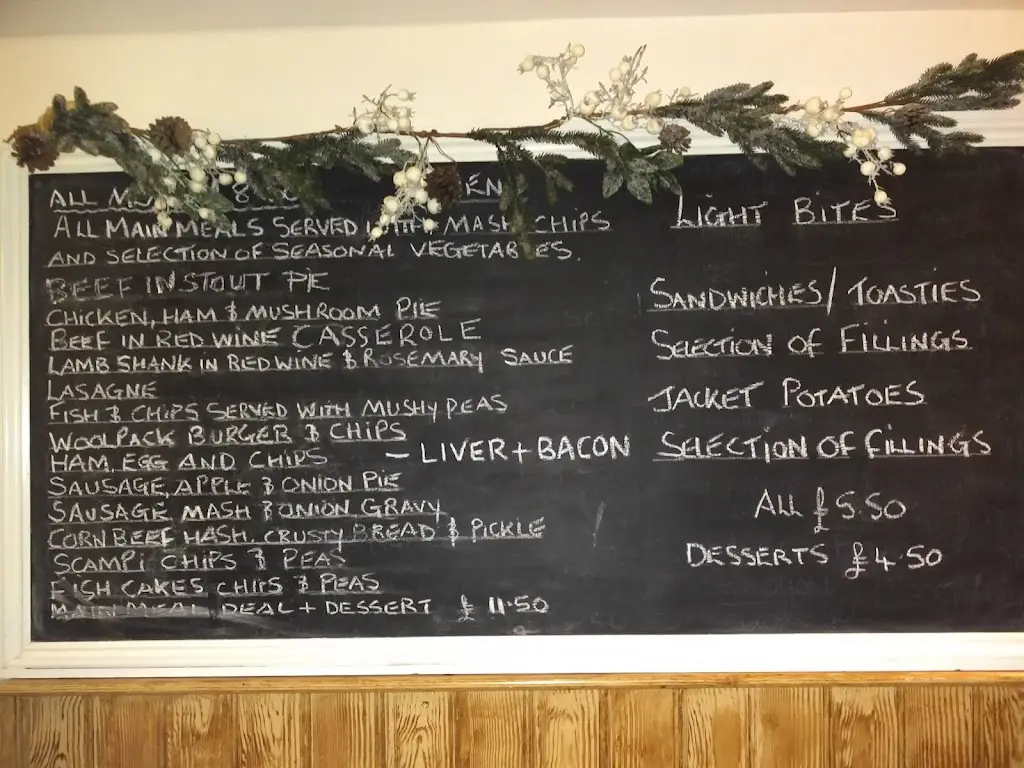 ALL
ALL MAIN MEALS SERVED WITH MASH, CHIPS
AND SELECTION OF SEASONAL VEGETABLES.
BEEF IN STOUT PIE
CHICKEN, HAM & MUSHROOM PIE
BEEF IN RED WINE CASSEROLE
LAMB SHANK IN RED WINE & ROSEMARY SAUCE
LASAGNE
FISH & CHIPS SERVED WITH MUSHY PEAS
WOOLPACK BURGER & CHIPS
HAM, EGG AND CHIPS - LIVER + BACON
SAUSAGE, APPLE & ONION PIE
SAUSAGE MASH & ONION GRAVY
CORN BEEF HASH, CRUSTY BREAD & PICKLE
SCAMPI CHIPS & PEAS
FISH CAKES CHIPS & PEAS
MAIN MEAL DEAL + DESSERT £11.50
LIGHT BITES
SANDWICHES/TOASTIES
SELECTION OF FILLINGS
JACKET POTATOES
SELECTION OF FILLINGS
ALL £5.50
DESSERTS £4.50